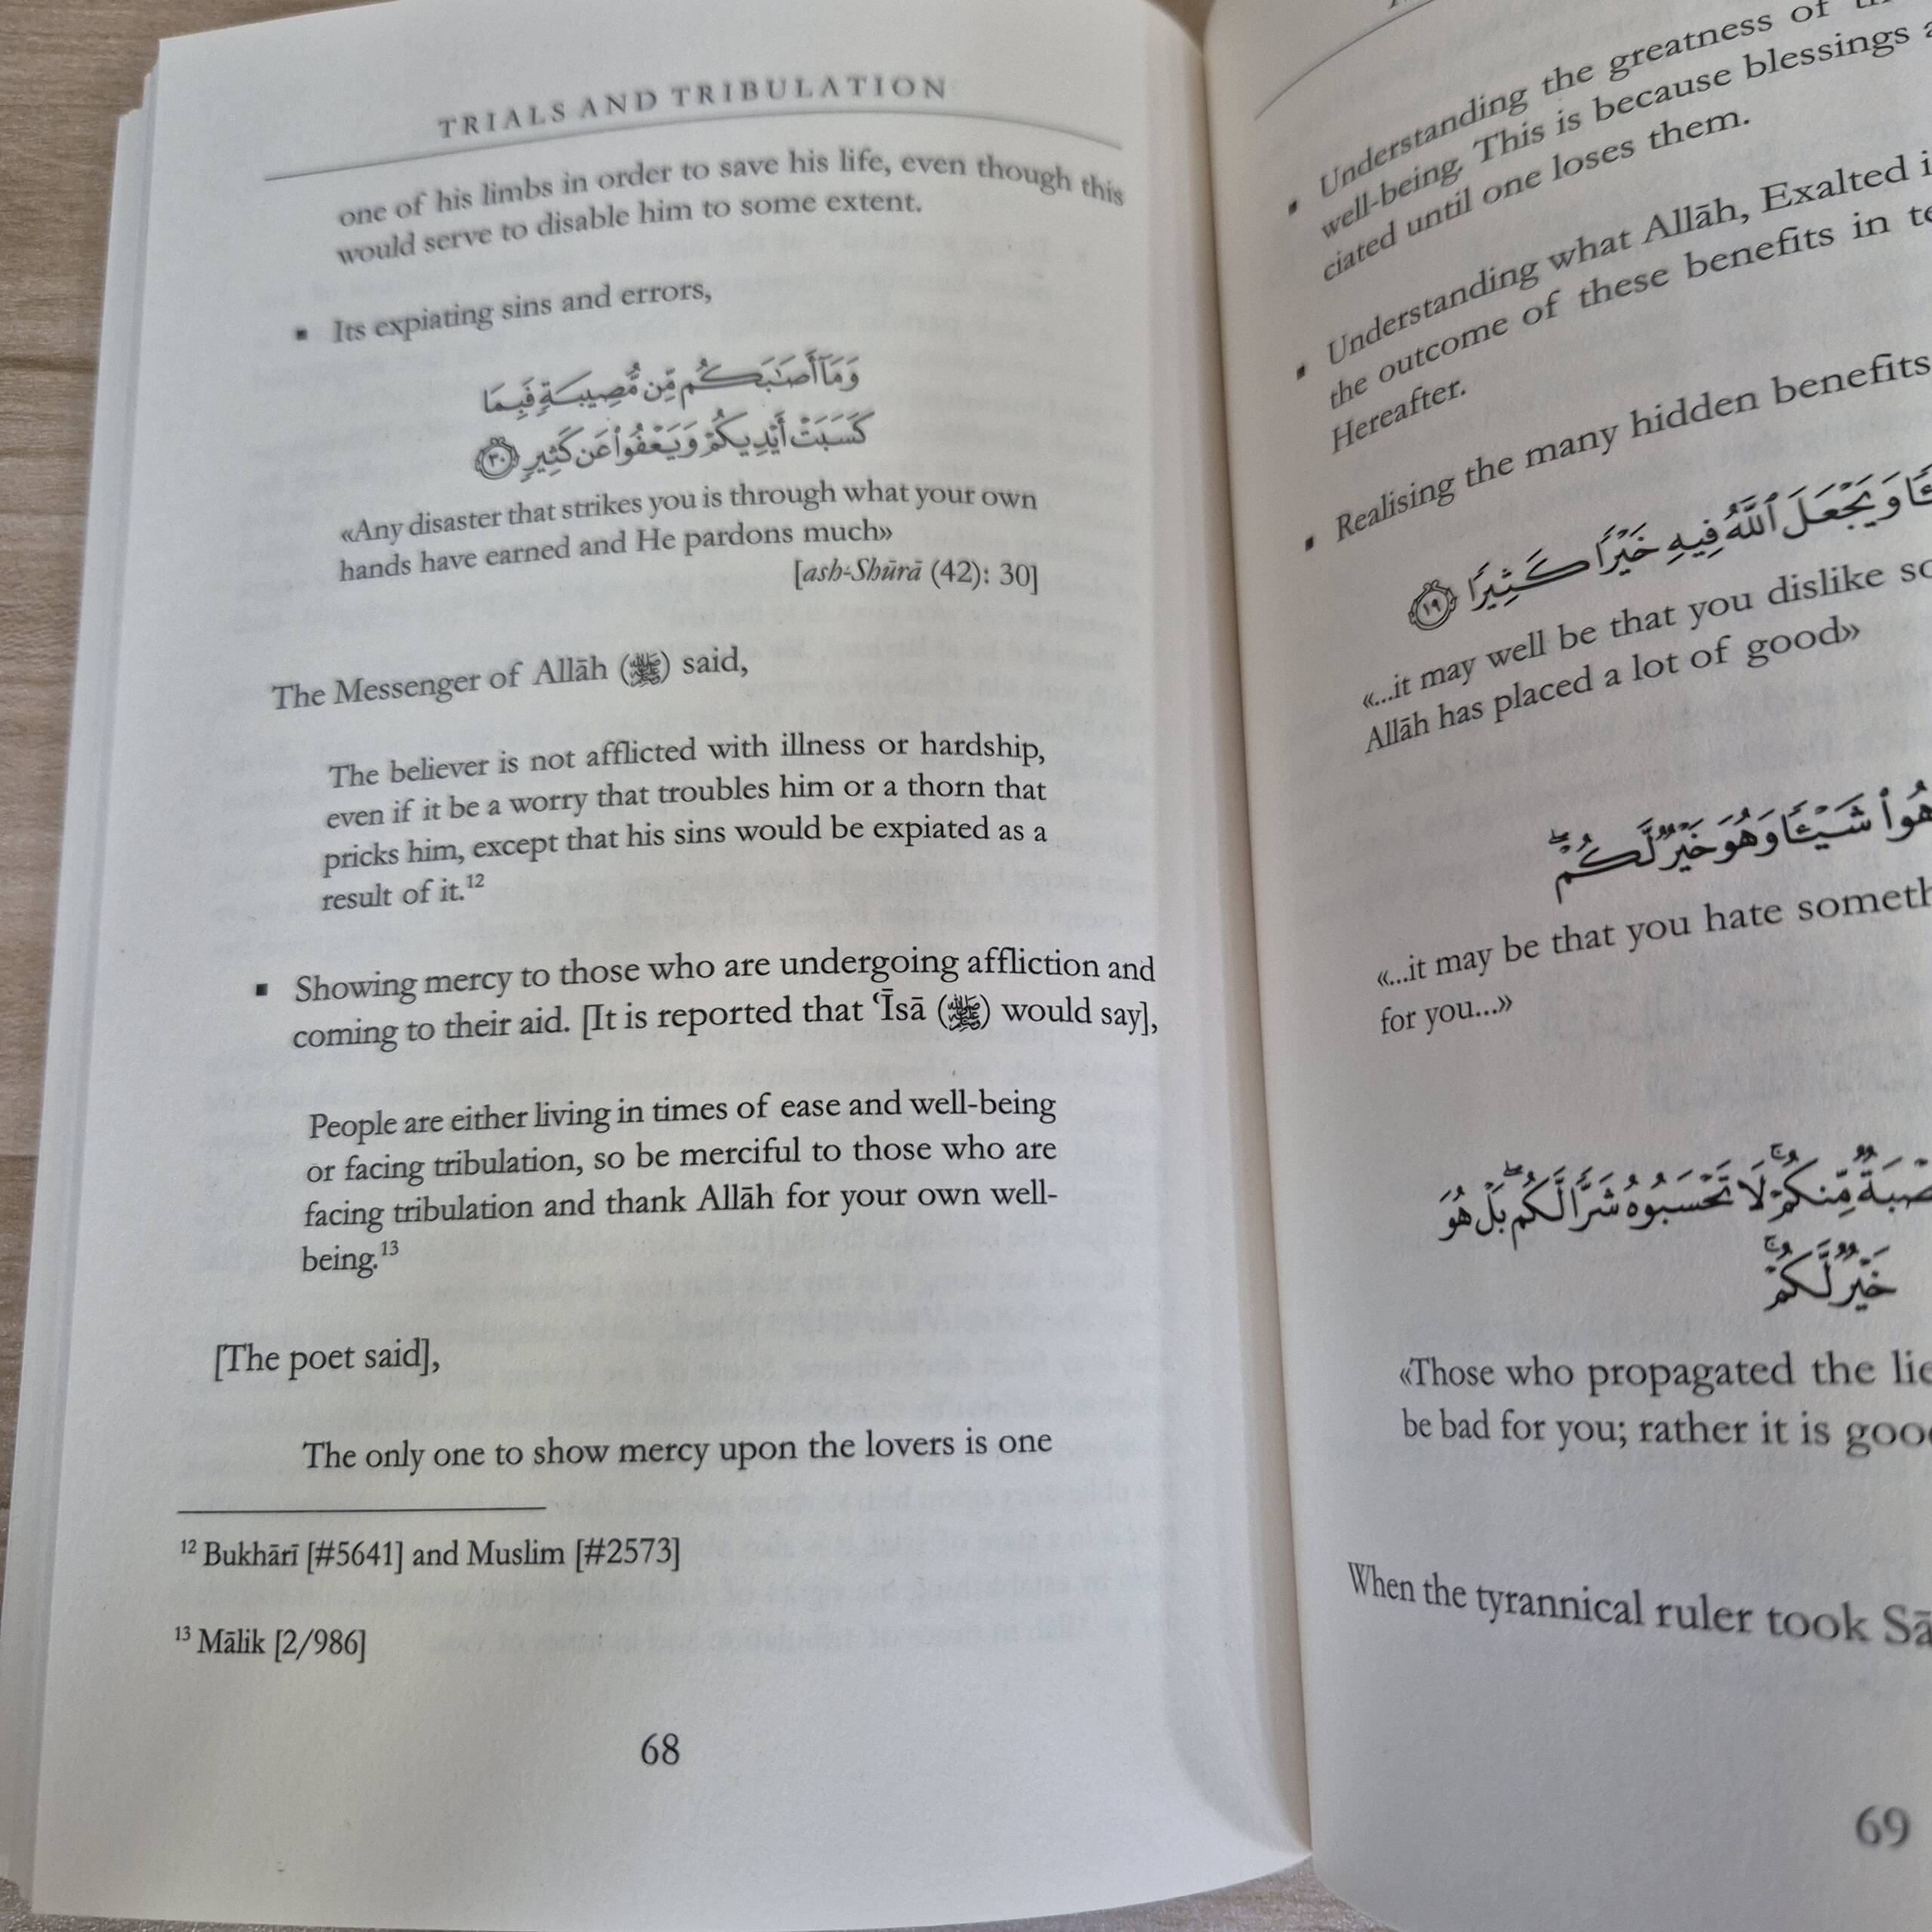 TRIALS AND TRIBULATION
one of his limbs in order to save his life, even though this
would serve to disable him to some extent.
▪ Its expiating sins and errors,
وَمَآ أَصَٰبَكُم مِّن مُّصِيبَةٍ فَبِمَا
كَسَبَتْ أَيْدِيكُمْ وَيَعْفُوا۟ عَن كَثِيرٍ ٣٠
«Any disaster that strikes you is through what your own
hands have earned and He pardons much»
[ash-Shūrā (42): 30]
The Messenger of Allāh (ﷺ) said,
The believer is not afflicted with illness or hardship,
even if it be a worry that troubles him or a thorn that
pricks him, except that his sins would be expiated as a
result of it.12
▪ Showing mercy to those who are undergoing affliction and
coming to their aid. [It is reported that ‘Īsā (ﷺ) would say],
People are either living in times of ease and well-being
or facing tribulation, so be merciful to those who are
facing tribulation and thank Allāh for your own well-
being.13
[The poet said],
The only one to show mercy upon the lovers is one
12 Bukhārī [#5641] and Muslim [#2573]
13 Mālik [2/986]
68
▪ Understanding the greatness of
well-being. This is because blessings
ciated until one loses them.
▪ Understanding what Allāh, Exalted
the outcome of these benefits in
Hereafter.
▪ Realising the many hidden benefits
وَيَجْعَلَ ٱللَّهُ فِيهِ خَيْرًا كَثِيرًا ١٩
«...it may well be that you dislike
Allāh has placed a lot of good»
شَيْـًٔا وَهُوَ خَيْرٌ لَّكُمْ ۖ
«...it may be that you hate
for you...»
مِّنكُمْ ۚ لَا تَحْسَبُوهُ شَرًّا لَّكُم ۖ بَلْ هُوَ
خَيْرٌ لَّكُمْ ۚ
«Those who propagated the
be bad for you; rather it is
When the tyrannical ruler took
69